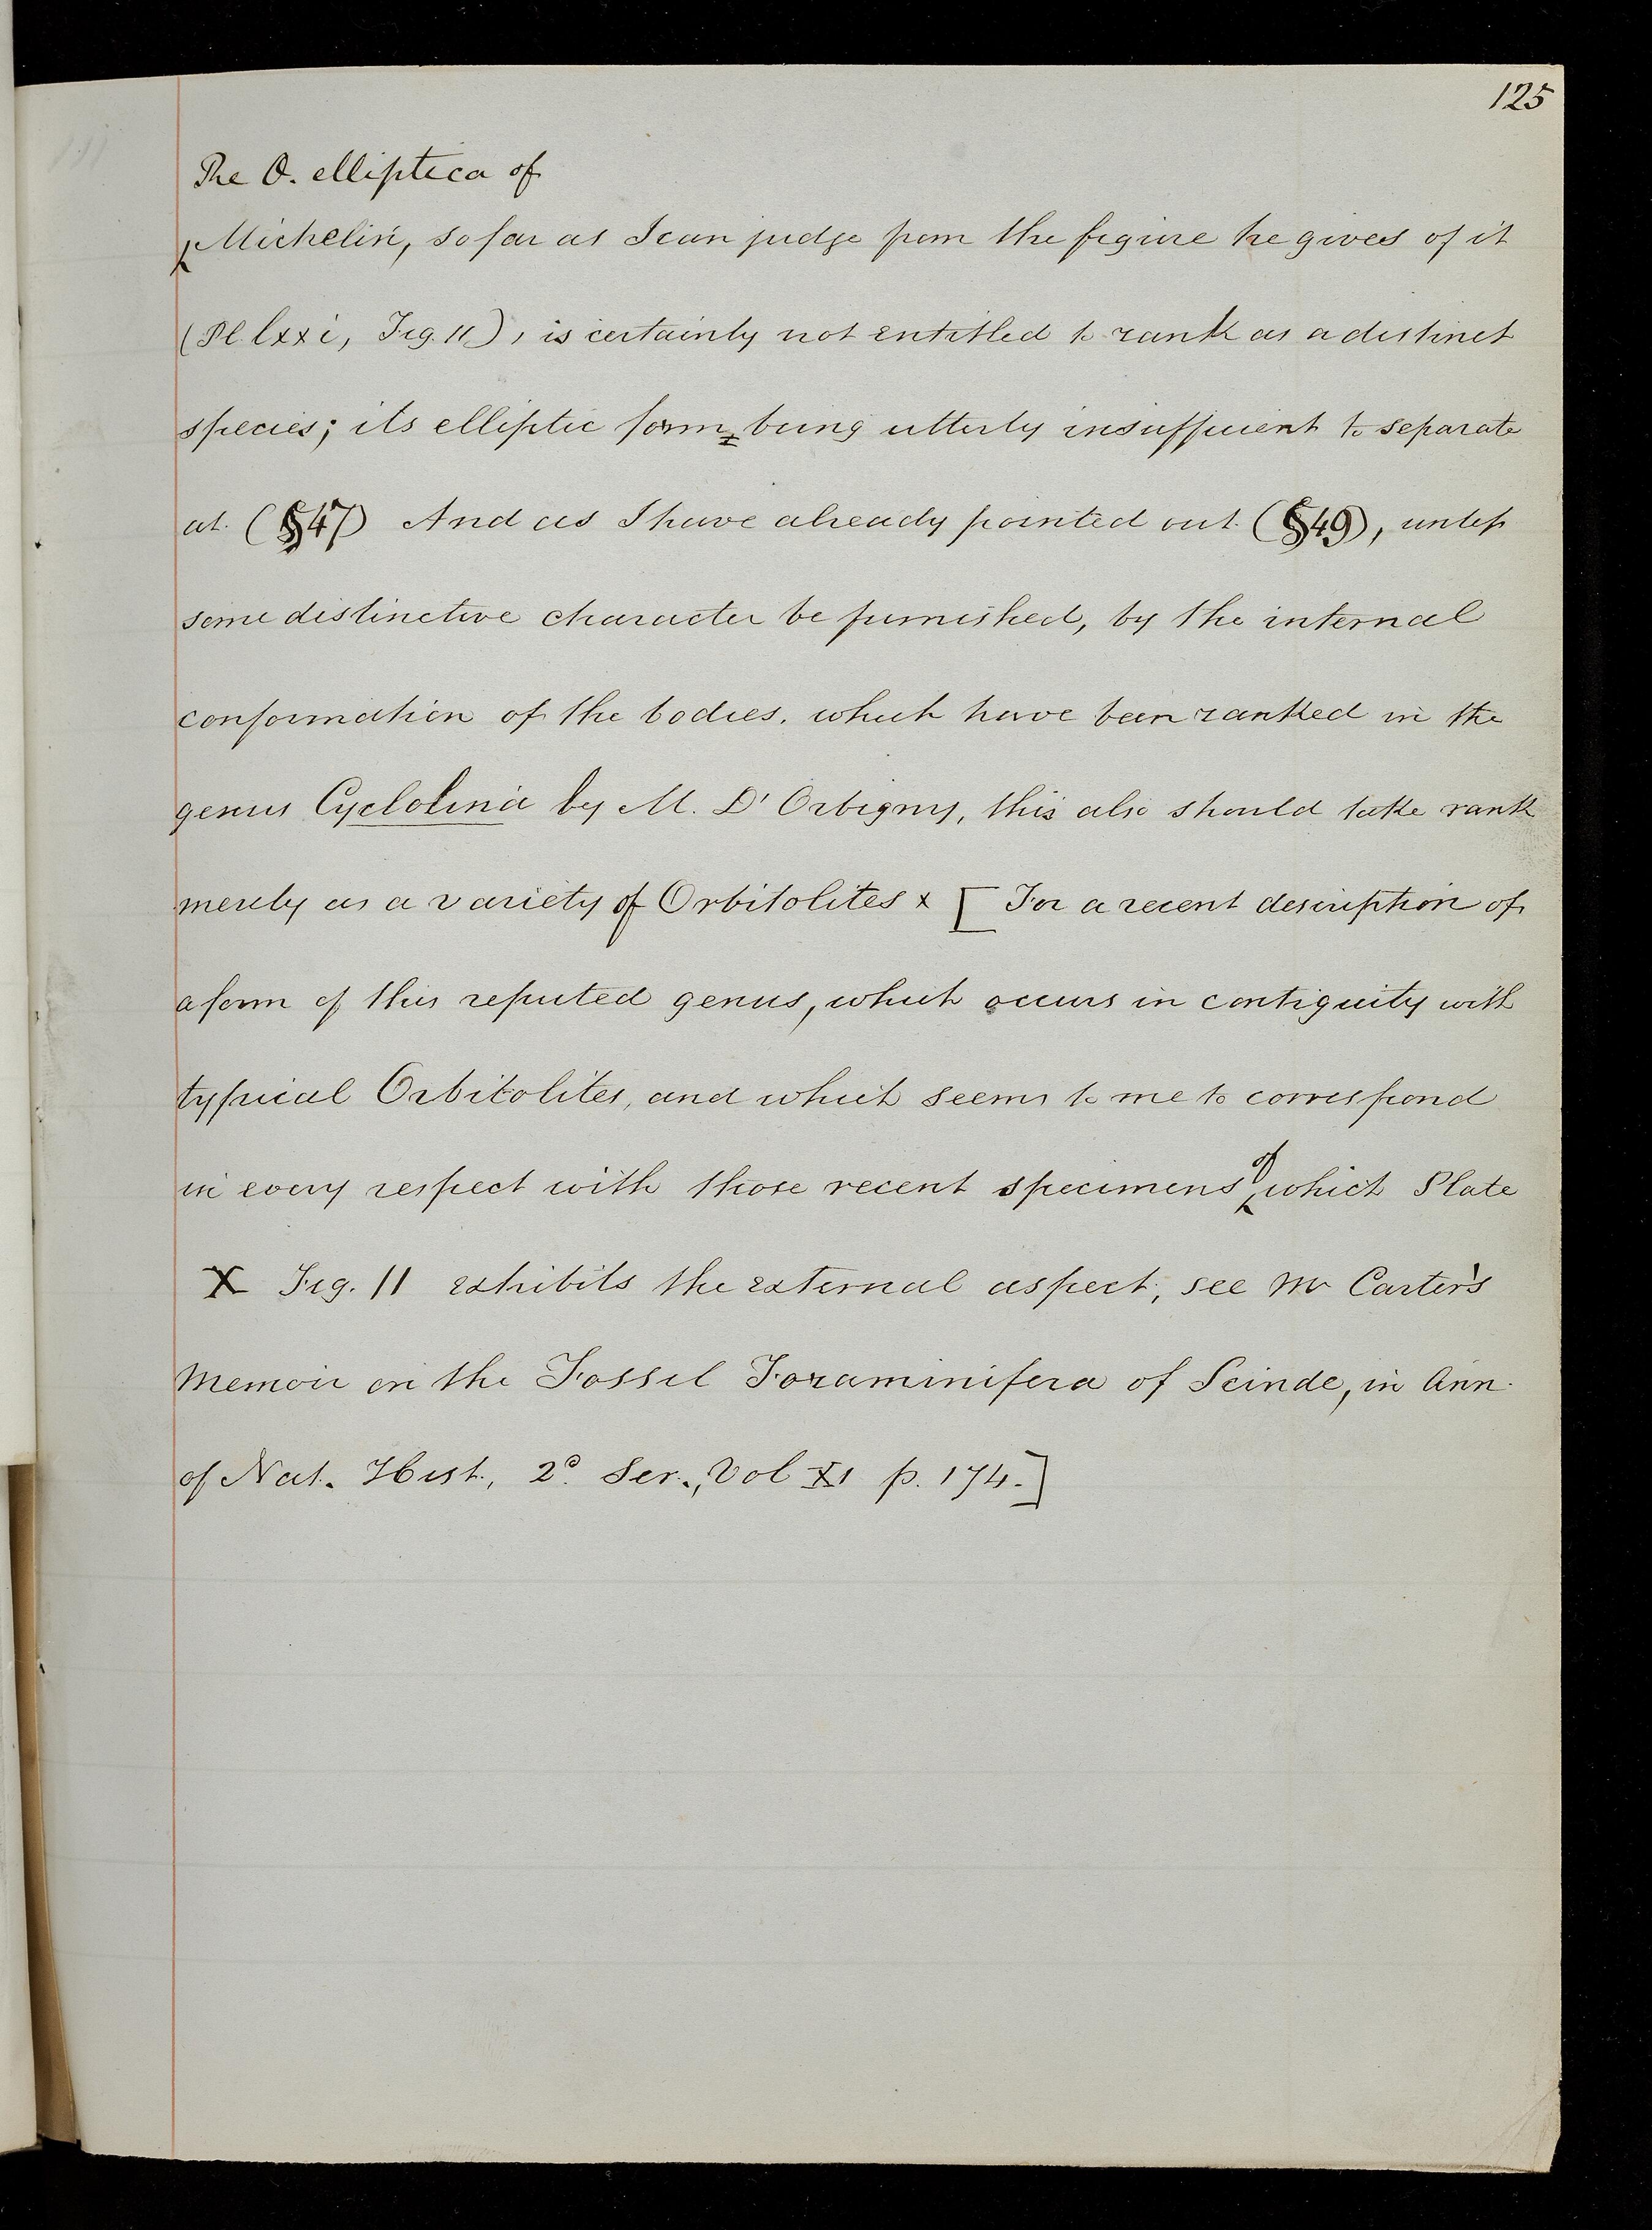 125
The O. elliptica of
Michelin, so far as I can judge from the figure he gives of it
(Pl. lxxi, Fig. 11), is certainly not entitled to rank as a distinct
species; its elliptic form being utterly insufficient to separate
at. (§47) And as I have already pointed out (§49), unless
some distinctive character be furnished, by the internal
conformation of the bodies. which have been ranked in the
genus Cyclolina by M. D'Orbigny, this also should take rank
merely as a variety of Orbitolites x [For a recent description of
a form of this reputed genus, which occurs in contiguity with
typical Orbitolites, and which seems to me to correspond
in every respect with those recent specimens of which Plate
X Fig. 11 exhibits the external aspect; see Mr Carter's
Memoir on the Fossil Foraminifera of Scinde, in Ann.
of Nat. Hist., 2d Ser., Vol XI p. 174.]